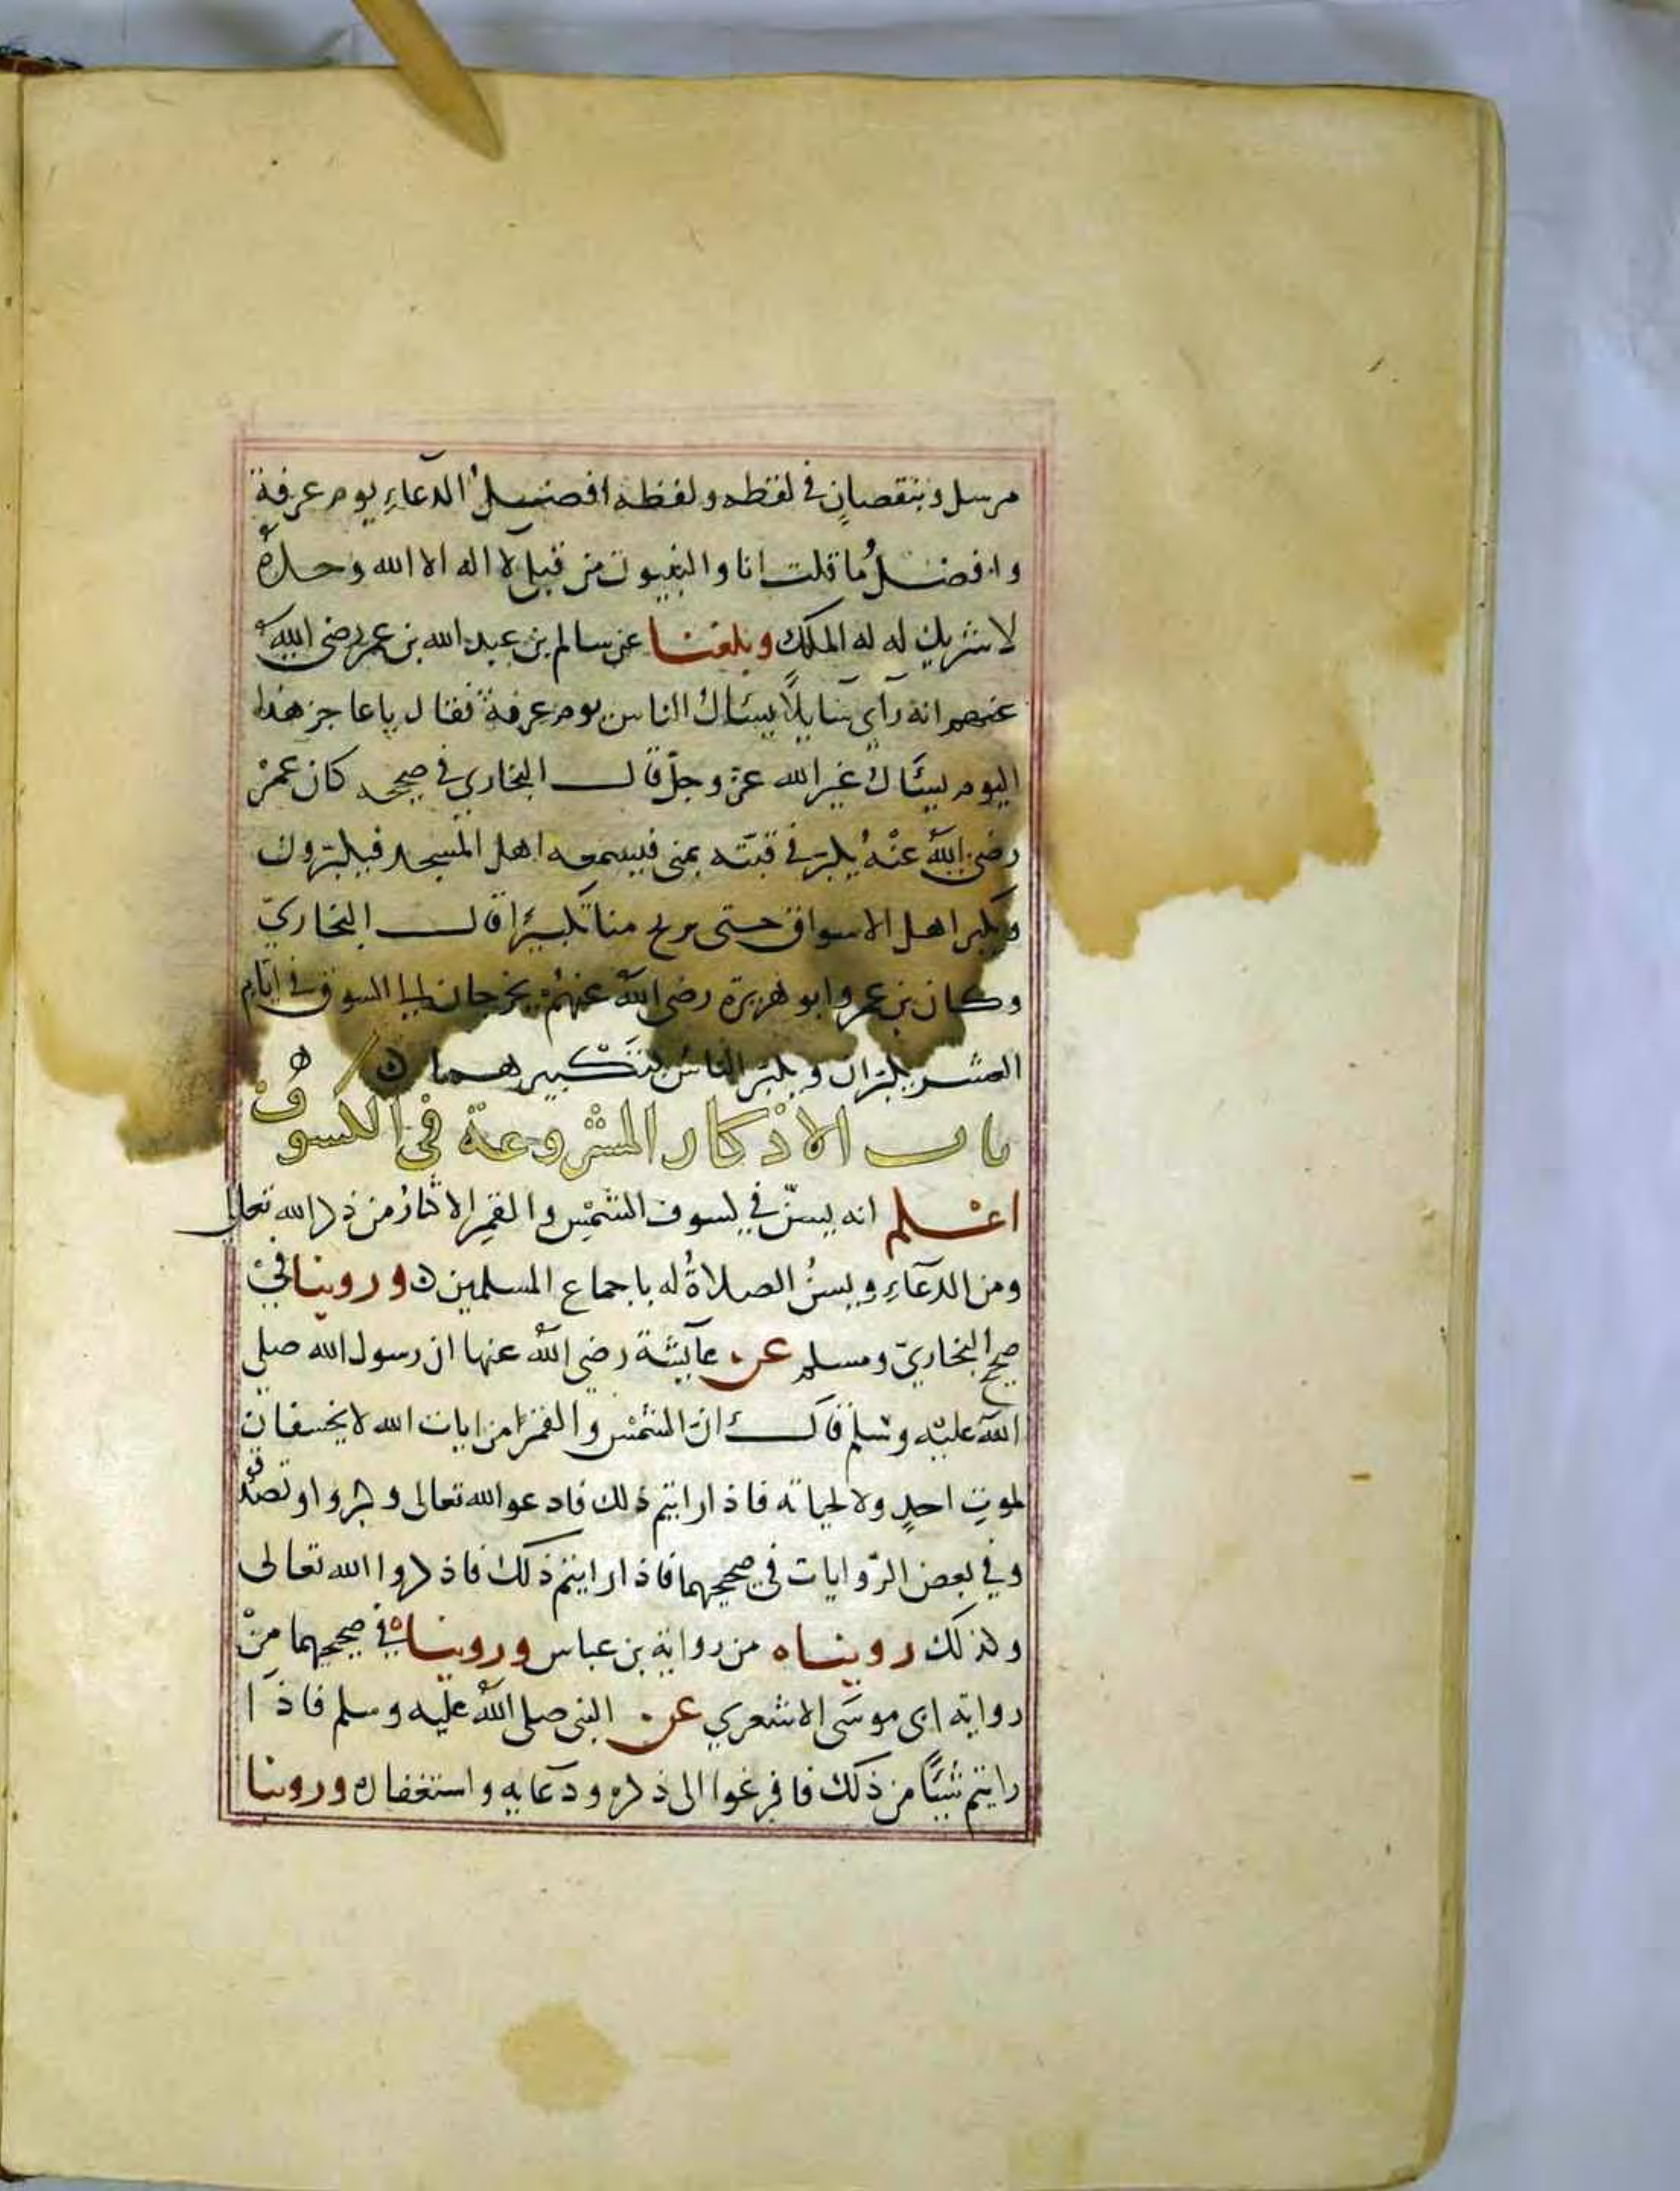 مرسل وبنقصان في لفظه ولفظه افضل الدعاء يوم عرفة
وافضل ما قلت انا والنبيون من قبلي لا اله الا الله وحده
لا شريك له له الملك وبلغنا عن سالم بن عبد الله بن عمر رضي الله
عنهم انه رآي سايلًا يسئال الناس يوم عرفة فقال يا عاجز هذا
اليوم يسئال غير الله عز وجل قال البخاري في صحيحه كان عمر
رضي الله عنه يكبر في قبته بمنى فيسمعه اهل المسجد فيكبرون
ويكبر اهل الاسواق حتى يرتج منا تكبيرًا قال البخاري
وكان بن عمر وابو هريرة رضي الله عنهم يخرجان الى السوق في ايام
العشر يكبران ويكبر الناس لتكبيرهما ن
باب الاذكار المشروعة في الكسوف
اعلم انه يسن في كسوف الشمس والقمر الاكثار من ذكر الله تعالى
ومن الدعاء ويسن الصلاة له باجماع المسلمين ن وروينا في
صحيح البخاري ومسلم عن عآيشة رضي الله عنها ان رسول الله صلى
الله عليه وسلم قال ان الشمس والقمر من ايات الله لا يخسفان
لموت احد ولا لحياته فاذا رايتم ذلك فادعو الله تعالى وكبروا وتصدقو
وفي بعض الروايات في صحيحهما فاذا رايتم ذلك فاذكروا الله تعالى
وكذلك رويناه من رواية بن عباس ورويناه في صحيحهما من
رواية ابي موسى الاشعري عن النبي صلى الله عليه وسلم فاذا
رايتم شيئًا من ذلك فافزعوا الى ذكره ودعايه واستغفاره وروينا